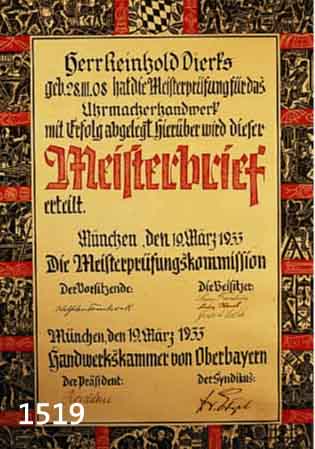 Herr Reinhold Dierks
geb. 28.III.08 hat die Meisterprüfung für das
Uhrmacherhandwerk
mit Erfolg abgelegt. Hierüber wird dieser
Meisterbrief
erteilt.
München, den 19. März 1955
Die Meisterprüfungskommission
Der Vorsitzende: Die Beisitzer:
München, den 19. März 1955
Handwerkskammer von Oberbayern
Der Präsident: Der Syndikus:
1519